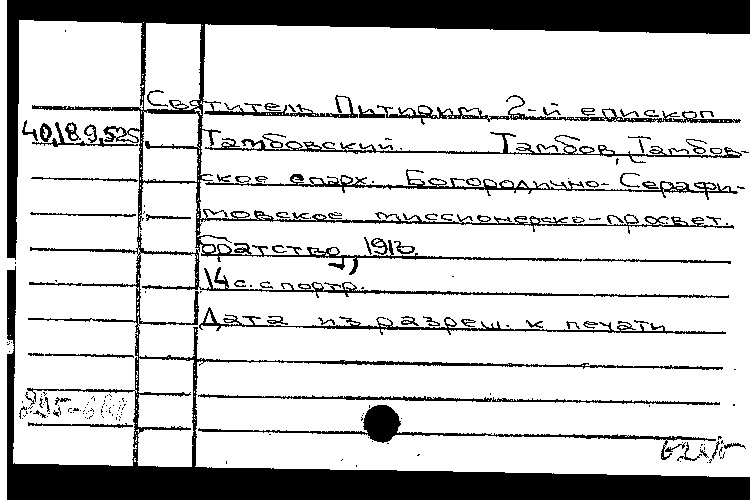 Святитель Питирим, 2-й епископ
40.18.9.525 Тамбовский. Тамбов, Тамбов-
ское епарх. Богородично-Серафи-
мовское миссионерско-просвет.
братство, 1913.
14 с. с портр.
Дата из разреш. к печати